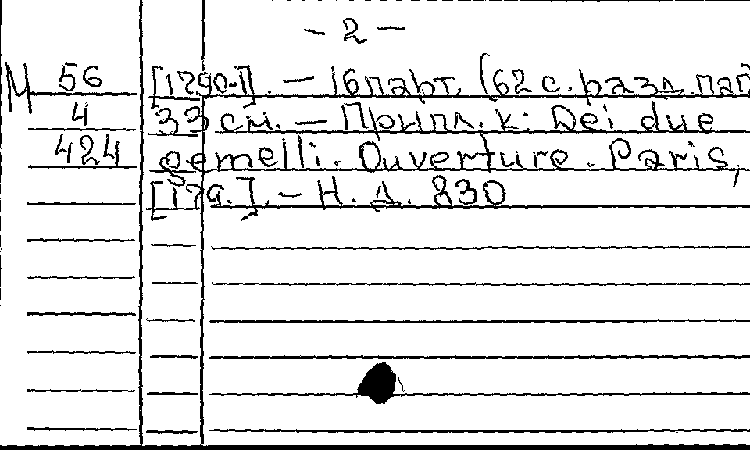 - 2 -
М 56 [1790-1]. — 16 парт. (62 с. разд. паг
4 33 см. — Припл. к: Dei due
424 gemelli. Ouverture. Paris,
[179.]. — Н. Д. 830